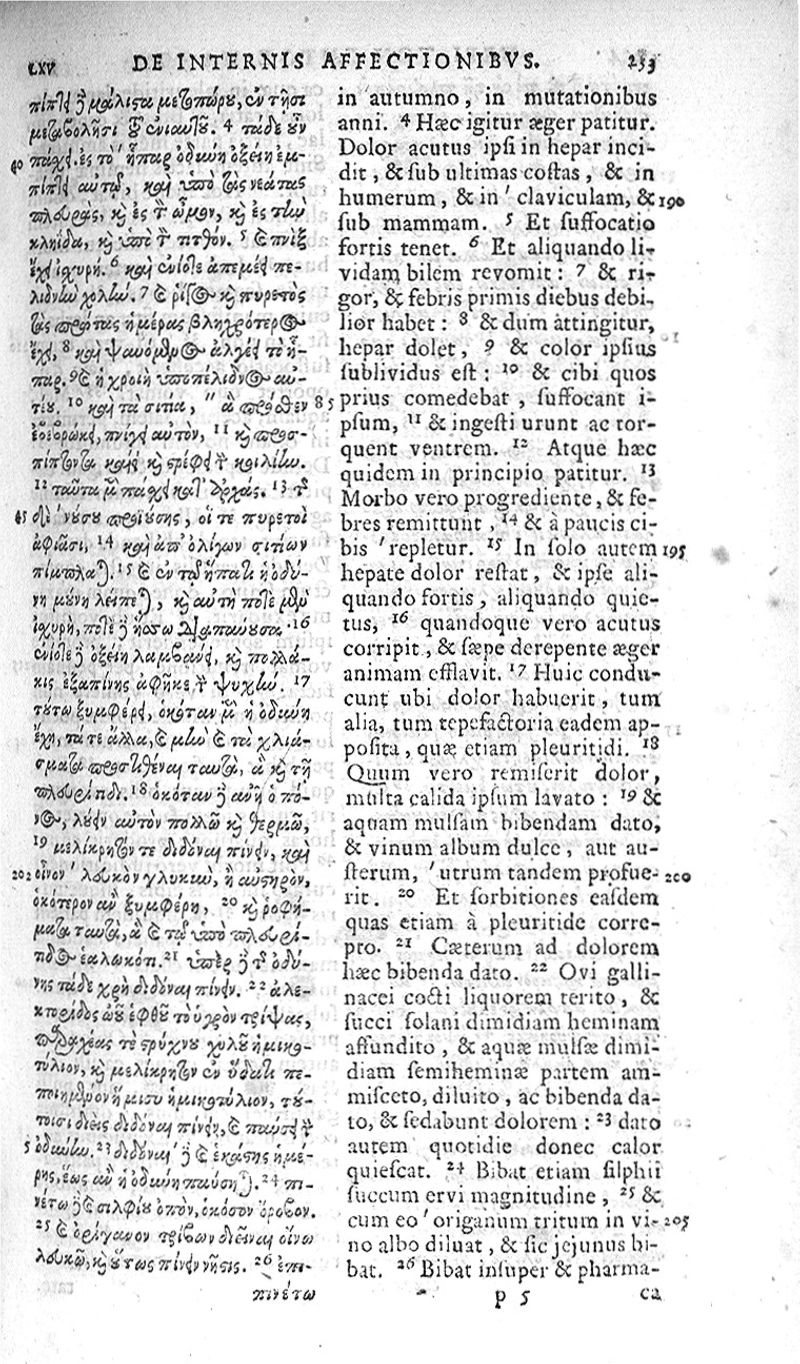 LXV DE INTERNIS AFFECTIONIBVS. 233
πίπτει ἢ μάλιστα μετοπώρου, ἐν τῇσι
μεταβολῇσι τοῦ ἐνιαυτοῦ. 4 τάδε οὖν
40 πάσχει. ἐς τὸ ἧπαρ ὀδύνη ὀξείη ἐμ-
πίπτει αὐτῷ, καὶ ὑπὸ τὰς νεάτας
πλευρὰς, καὶ ἐς τὸν ὦμον, καὶ ἐς τὴν
κληῖδα, καὶ ὑπὸ τὸν τιτθόν. 5 καὶ πνὶξ
ἔχει ἰσχυρή. 6 καὶ ἐνίοτε ἀπεμέει πε-
λιδνὴν χολήν. 7 καὶ ῥῖγος καὶ πυρετὸς
τὰς πρώτας ἡμέρας βληχρότερος
ἔχει, 8 καὶ ψαυόμενος ἀλγέει τὸ ἧ-
παρ. 9 καὶ ἡ χροιὴ ὑποπέλιδνος αὐ-
τέου. 10 καὶ τὰ σιτία, " ἃ πρόσθεν 85
ἐβεβρώκει, πνίγει αὐτὸν, 11 καὶ προσ-
πίπτοντα καίει καὶ στρέφει τὴν κοιλίην.
12 ταῦτα μὲν πάσχει κατ' ἀρχάς. 13 τῆς
45 δὲ 'νούσου προϊούσης, οἵ τε πυρετοὶ
ἀφιᾶσι, 14 καὶ ἀπ' ὀλίγων σιτίων
πίμπλαται. 15 καὶ ἐν τῷ ἥπατι ἡ ὀδύ-
νη μούνη λείπεται, καὶ αὐτὴ ποτὲ μὲν
ἰσχυρὴ, ποτὲ δὲ ἧσσω διαπαύουσα. 16
ἐνίοτε δὲ ὀξείη λαμβάνει, καὶ πολλά-
κις ἐξαπίνης ἀφῆκε τὴν ψυχήν. 17
τούτῳ ξυμφέρει, ὁκόταν μὲν ἡ ὀδύνη
ἔχῃ, τά τε ἄλλα, καὶ μὴν καὶ τὰ χλιά-
σματα προστιθέναι ταυτὰ, ἃ καὶ τῇ
πλευρίτιδι. 18 ὁκόταν δὲ ἀνῇ ὁ πό-
νος, λούειν αὐτὸν πολλῷ καὶ θερμῷ,
19 μελίκρητόν τε διδόναι πίνειν, καὶ
202 οἶνον 'λευκὸν γλυκὺν, ἢ αὐστηρὸν,
ὁκότερον ἂν ξυμφέρῃ, 20 καὶ ῥοφή-
ματα ταυτὰ, ἃ καὶ τῷ ὑπὸ πλευρίτι-
δος ἑαλωκότι. 21 ὑπὲρ δὲ τῆς ὀδύ-
νης τάδε χρὴ διδόναι πίνειν. 22 ἀλε-
κτορίδος ὠοῦ ἑφθοῦ τὸ ὑγρὸν τρίψας,
παραχέας τε στρύχνου χυλοῦ ἡμικο-
τύλιον, καὶ μελίκρητον ἐν ὕδατι πε-
ποιημένον ἥμισυ ἡμικοτύλιον, τού-
τοισι διεὶς διδόναι πίνειν, καὶ παύσει τὴν
5 ὀδύνην. 23 διδόναι δὲ καὶ ἑκάστης ἡμέ-
ρης, ἕως ἂν ἡ ὀδύνη παύσηται. 24 πι-
νέτω δὲ καὶ σιλφίου ὀπὸν, ὁκόσον ὄροβον.
25 καὶ ὀρίγανον τρίβων διεῖναι οἴνῳ
λευκῷ, καὶ οὕτως πίνειν νῆστις. 26 ἐπι-
πινέτω
in autumno, in mutationibus
anni. 4 Hæc igitur æger patitur.
Dolor acutus ipsi in hepar inci-
dit, & sub ultimas costas, & in
humerum, & in' claviculam, & 190
sub mammam. 5 Et suffocatio
fortis tenet. 6 Et aliquando li-
vidam bilem revomit: 7 & ri-
gor, & febris primis diebus debi-
lior habet: 8 & dum attingitur,
hepar dolet, 9 & color ipsius
sublividus est: 10 & cibi quos
prius comedebat, suffocant i-
psum, 11 & ingesti urunt ac tor-
quent ventrem. 12 Atque hæc
quidem in principio patitur. 13
Morbo vero progrediente, & fe-
bres remittunt, 14 & à paucis ci-
bis 'repletur. 15 In solo autem 195
hepate dolor restat, & ipse ali-
quando fortis, aliquando quie-
tus, 16 quandoque vero acutus
corripit, & sæpe derepente æger
animam efflavit. 17 Huic condu-
cunt ubi dolor habuerit, tum
alia, tum tepefactoria eadem ap-
posita, quæ etiam pleuritidi. 18
Quum vero remiserit dolor,
multa calida ipsum lavato: 19 &
aquam mulsam bibendam dato,
& vinum album dulce, aut au-
sterum, 'utrum tandem profue- 200
rit. 20 Et sorbitiones easdem
quas etiam à pleuritide corre-
pto. 21 Cæterum ad dolorem
hæc bibenda dato. 22 Ovi galli-
nacei cocti liquorem terito, &
succi solani dimidiam heminam
affundito, & aquæ mulsæ dimi-
diam semiheminæ partem am-
misceto, diluito, ac bibenda da-
to, & sedabunt dolorem: 23 dato
autem quotidie donec calor
quiescat. 24 Bibat etiam silphii
succum ervi magnitudine, 25 &
cum eo 'origanum tritum in vi- 205
no albo diluat, & sic jejunus bi-
bat. 26 Bibat insuper & pharma-
p 5 ca